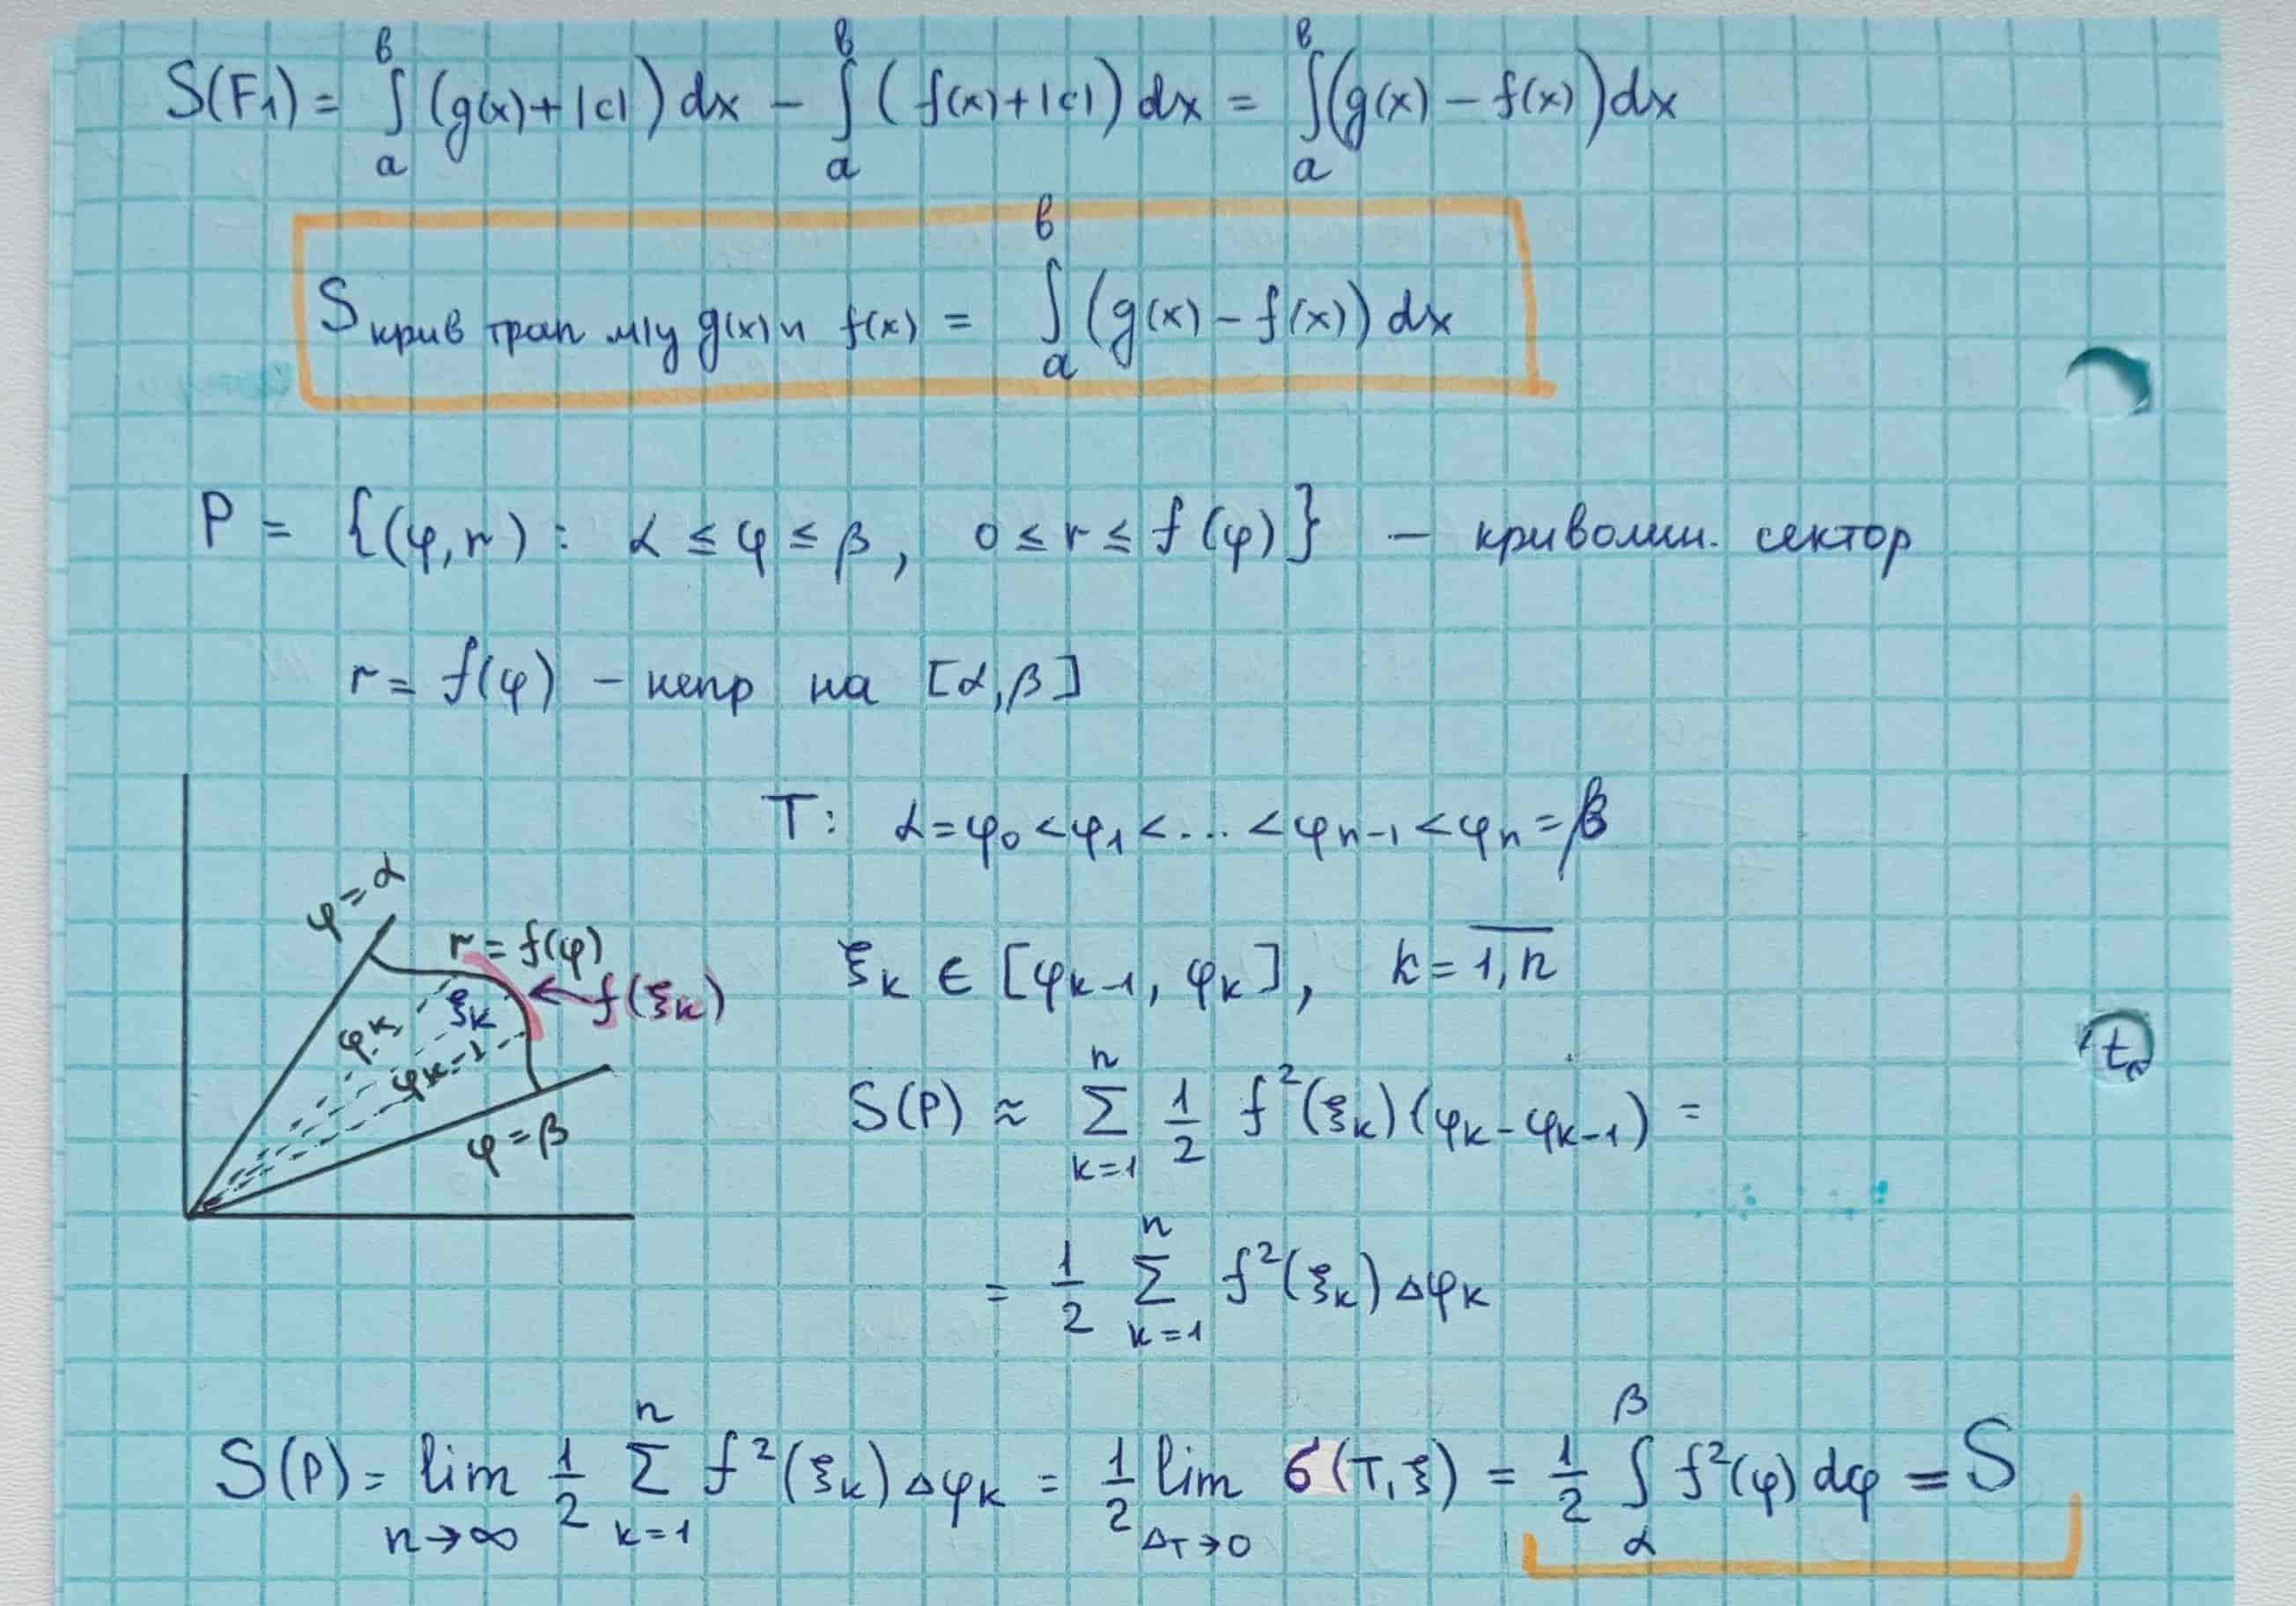 S(F₁) = ∫ₐᵇ (g(x) + |c|) dx − ∫ₐᵇ (f(x) + |c|) dx = ∫ₐᵇ (g(x) − f(x)) dx
S крив трап м/у g(x) и f(x) = ∫ₐᵇ (g(x) − f(x)) dx
P = {(φ, r) : α ≤ φ ≤ β, 0 ≤ r ≤ f(φ)} — криволин. сектор
r = f(φ) — непр на [α, β]
T: α = φ₀ < φ₁ < ... < φₙ₋₁ < φₙ = β
φ = α
r = f(φ)
f(ξₖ)
ξₖ
φₖ
φₖ₋₁
φ = β
ξₖ ∈ [φₖ₋₁, φₖ], k = \overline{1, n}
S(P) ≈ ∑_{k=1}^{n} 1/2 f²(ξₖ)(φₖ − φₖ₋₁) =
= 1/2 ∑_{k=1}^{n} f²(ξₖ) Δφₖ
S(P) = lim_{n→∞} 1/2 ∑_{k=1}^{n} f²(ξₖ) Δφₖ = 1/2 lim_{Δ_T→0} σ(T, ξ) = 1/2 ∫_α^β f²(φ) dφ = S